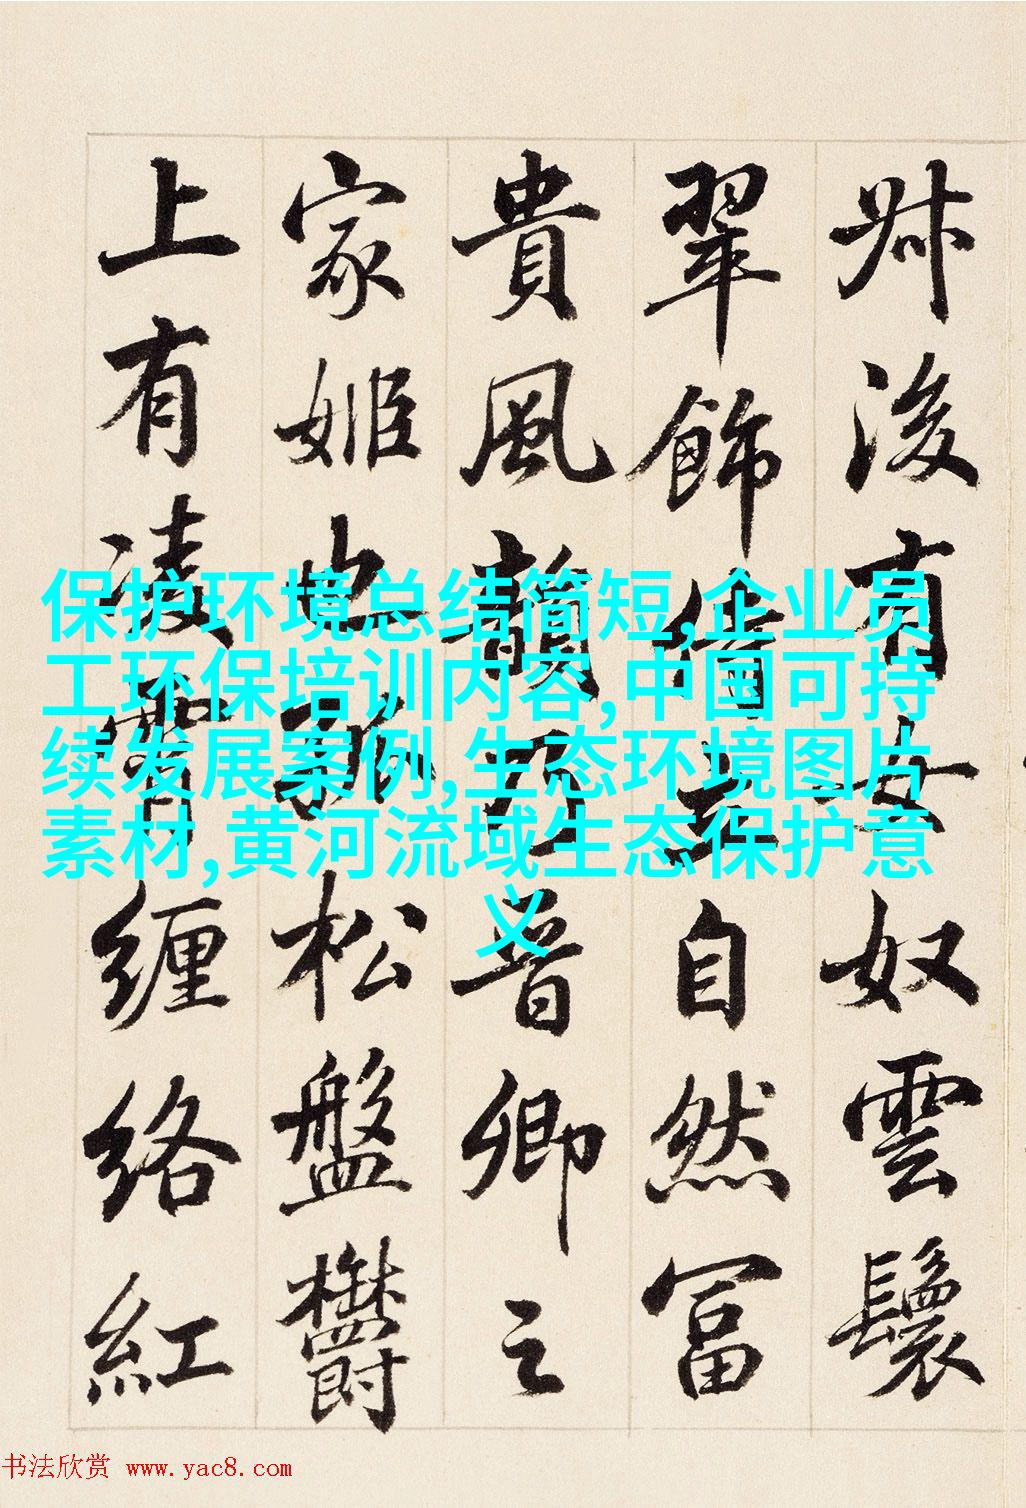 叔後有女奴雲鬟
翠飾立自然富
貴風韻乃晋卿之
家姬也孤松盤鬱
上有凌霄纏絡紅
保护环境总结简短,企业员
工环保培训内容,中国可持
续发展案例,生态环境图片
素材,黄河流域生态保护意
义
书法欣赏 www.yac8.com